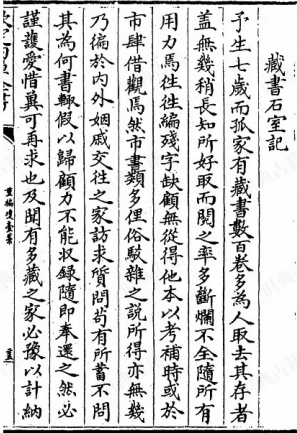 藏書石室記
予生七歲而孤家有藏書數百卷多為人取去其存者
蓋無幾稍長知所好取而閱之率多斷爛不全隨所有
用力焉往往編殘字缺顧無從得他本以考補時或於
市肆借觀焉然市書類多俚俗駁雜之說所得亦無幾
乃徧於內外姻戚交往之家訪求質問茍有所蓄不問
其為何書輙假以歸顧力不能收録隨即奉還之然必
謹護愛惜冀可再求也及聞有多藏之家必豫以計納
重編瓊臺藁